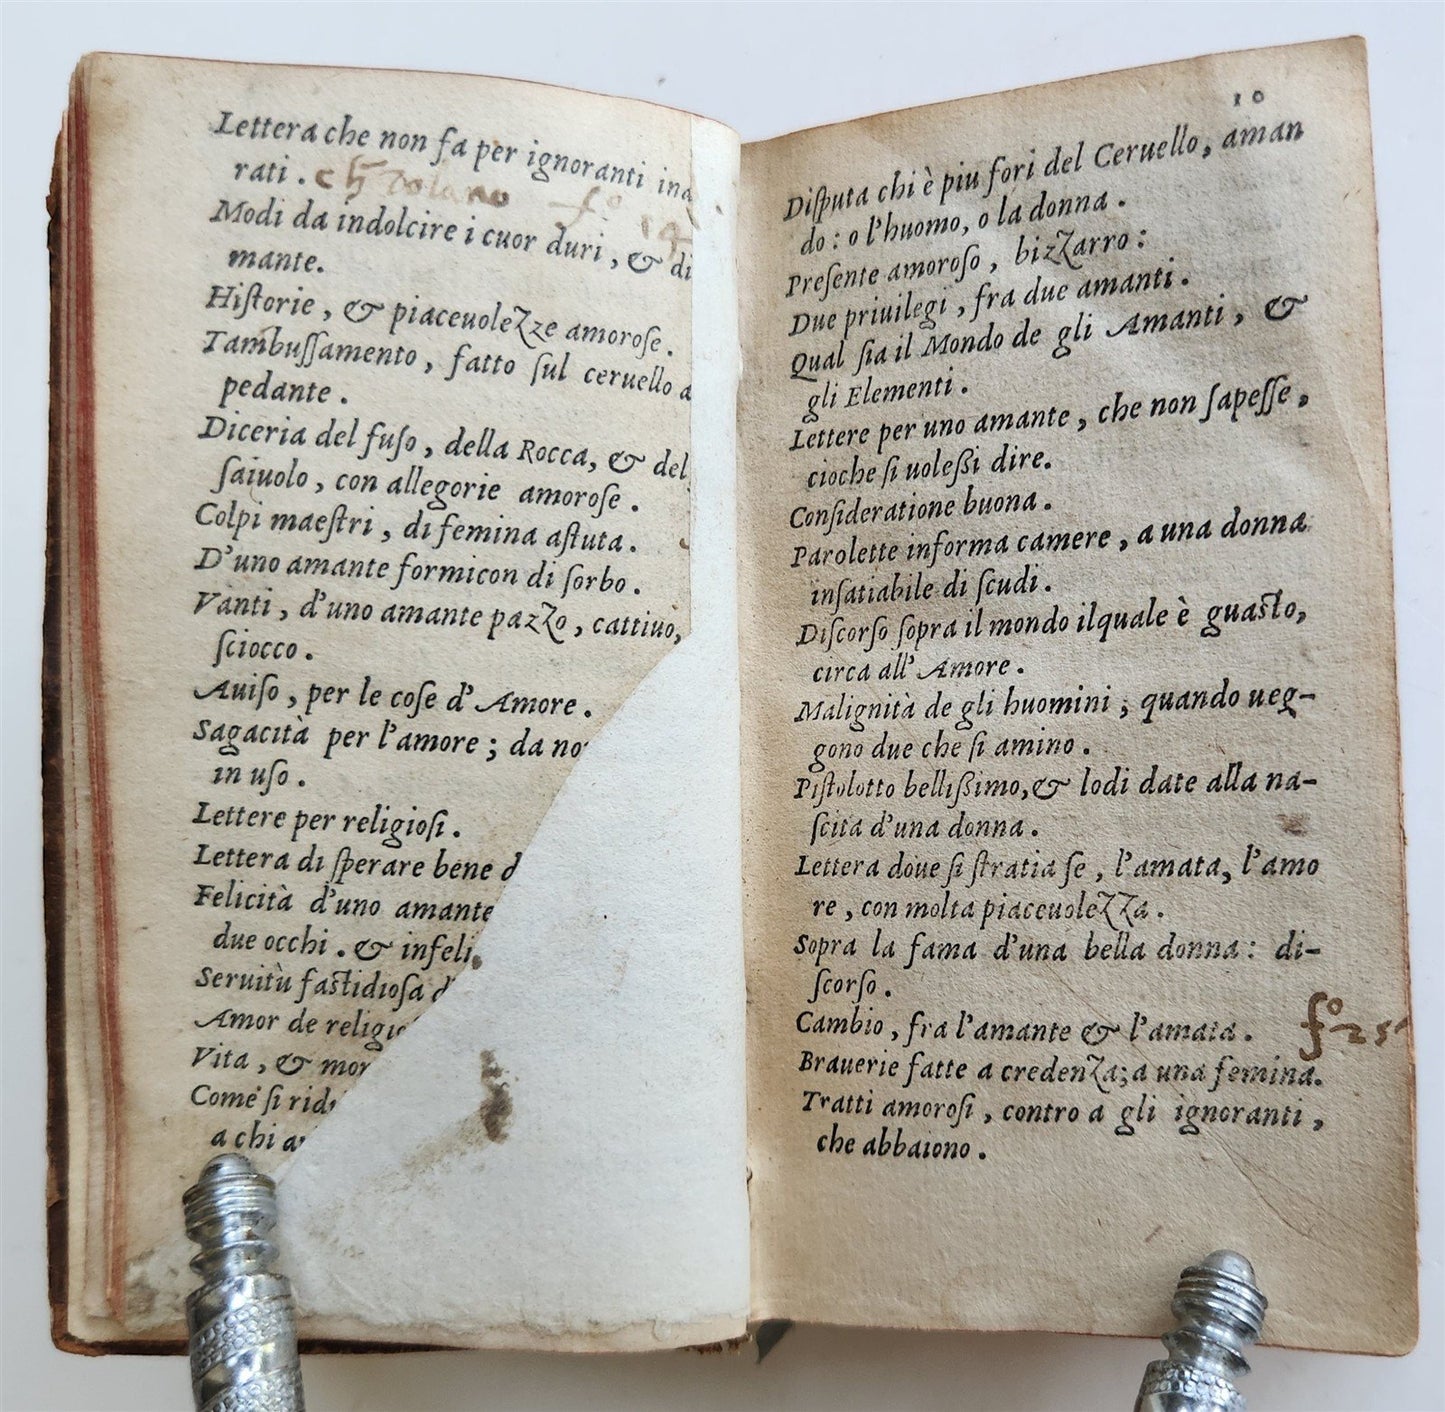 Lettera che non fa per ignoranti
rati.
fº 14
Modi da indolcire i cuor duri, & di
mante.
Hiſtorie, & piaceuoleZze amoroſe.
Tambuſſamento, fatto ſul ceruello a
pedante.
Diceria del fuſo, della Rocca, & del
ſaiuolo, con allegorie amoroſe.
Colpi maeſtri, di femina aſtuta.
D'uno amante formicon di ſorbo.
Vanti, d'uno amante pazZo, cattiuo,
ſciocco.
Auiſo, per le coſe d'Amore.
Sagacità per l'amore; da no
in uſo.
Lettere per religioſi.
Lettera di ſperare bene d
Felicità d'uno amante
due occhi. & infeli
Seruitù faſtidioſa d
Amor de religio
Vita, & mor
Come ſi rid
a chi a
10
Diſputa chi è piu fori del Ceruello, aman
do: o l'huomo, o la donna.
Preſente amoroſo, bizZarro:
Due priuilegi, fra due amanti.
Qual ſia il Mondo de gli Amanti, &
gli Elementi.
Lettere per uno amante, che non ſapeſſe,
cioche ſi uoleßi dire.
Conſideratione buona.
Parolette informa camere, a una donna
inſatiabile di ſcudi.
Diſcorſo ſopra il mondo ilquale è guaſto,
circa all'Amore.
Malignità de gli huomini; quando ueg-
gono due che ſi amino.
Piſtolotto bellißimo, & lodi date alla na-
ſcita d'una donna.
Lettera doue ſi ſtratia ſe, l'amata, l'amo
re, con molta piaceuoleZZa.
Sopra la fama d'una bella donna: di-
ſcorſo.
Cambio, fra l'amante & l'amata.
fº 25
Brauerie fatte a credenZa; a una femina.
Tratti amoroſi, contro a gli ignoranti,
che abbaiono.